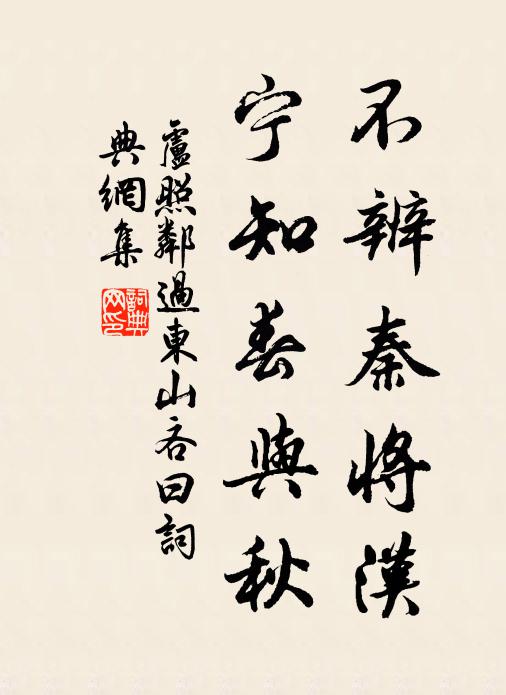 不辨秦將漢
宁知春與秋
盧照鄰過東山谷曰詞
典網集
詞典
网印